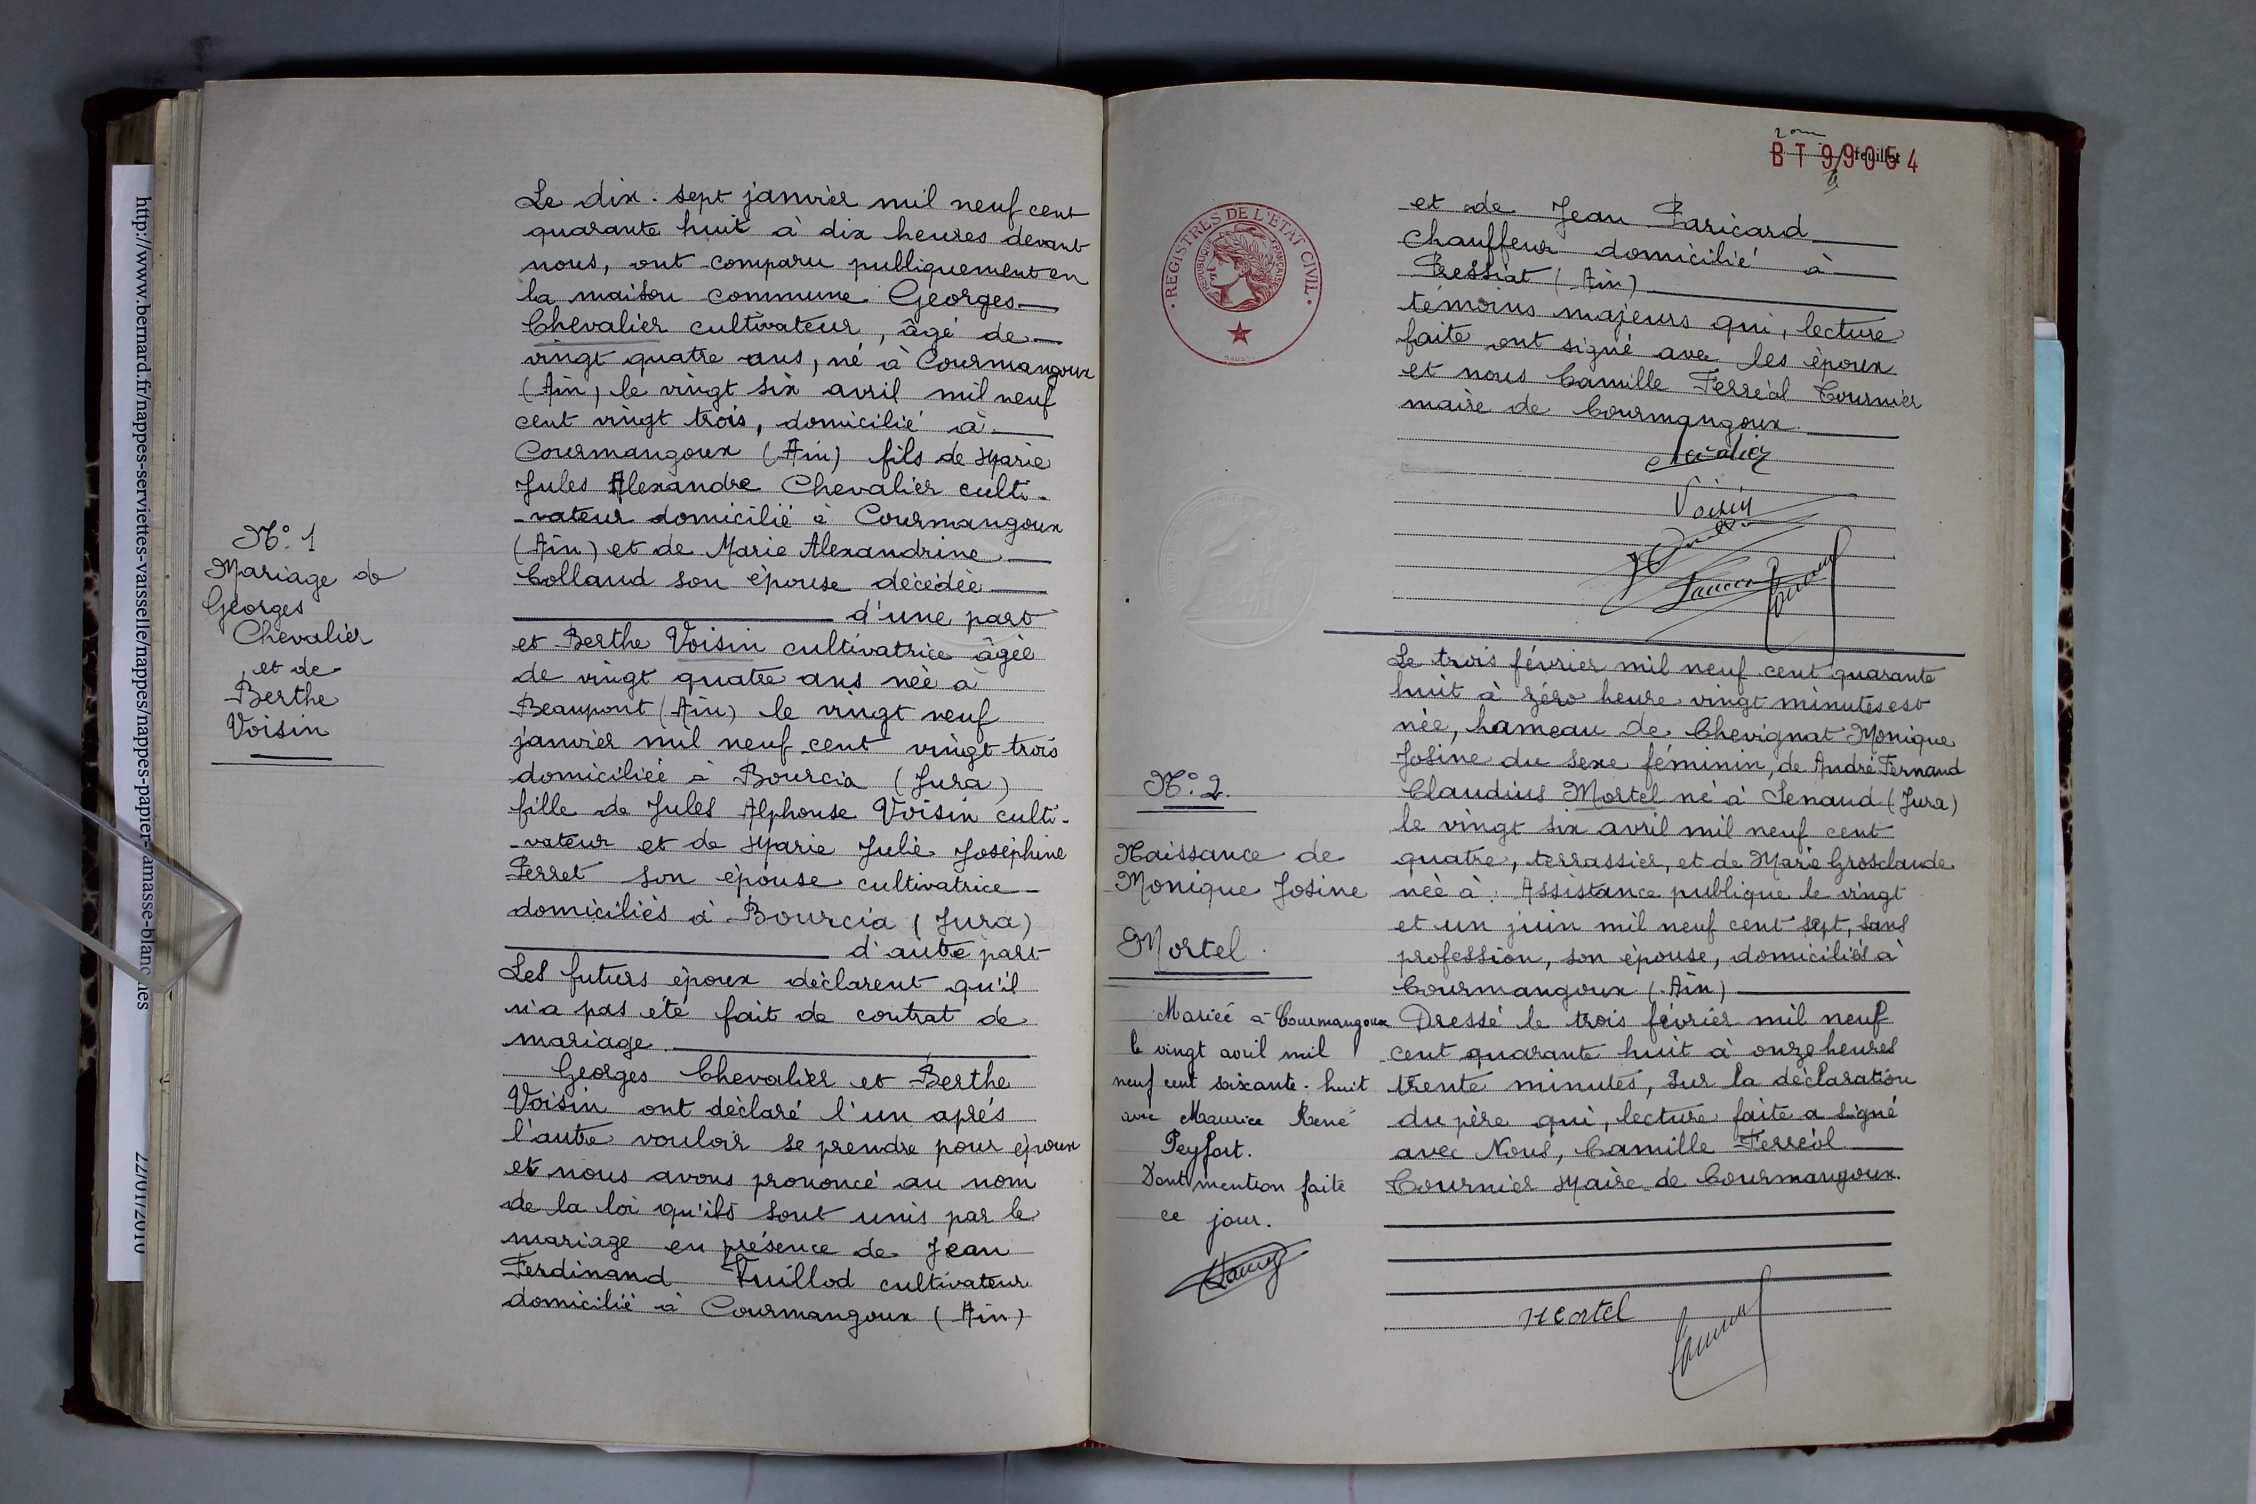 http://www.bernard.fr/nappes-serviettes-vaisselle/nappes/nappes-papier-
22/01/2010
N° 1
Mariage de
Georges
Chevalier
et de
Berthe
Voisin
Le dix-sept janvier mil neuf cent
quarante huit à dix heures devant
nous, ont comparu publiquement en
la maison commune Georges
Chevalier cultivateur, âgé de
vingt quatre ans, né à Courmangoux
(Ain) le vingt six avril mil neuf
cent vingt trois, domicilié à
Courmangoux (Ain) fils de Marie
Jules Alexandre Chevalier culti-
-vateur domicilié à Courmangoux
(Ain) et de Marie Alexandrine
Colland son épouse décédée
d'une part
et Berthe Voisin cultivatrice âgée
de vingt quatre ans née à
Beaupont (Ain) le vingt neuf
janvier mil neuf cent vingt trois
domiciliée à Bourcia (Jura)
fille de Jules Alphonse Voisin culti-
-vateur et de Marie Julie Joséphine
Perret son épouse cultivatrice
domiciliés à Bourcia (Jura)
d'autre part
Les futurs époux déclarent qu'il
n'a pas été fait de contrat de
mariage.
Georges Chevalier et Berthe
Voisin ont déclaré l'un après
l'autre vouloir se prendre pour époux
et nous avons prononcé au nom
de la loi qu'ils sont unis par le
mariage en présence de Jean
Ferdinand Vuillod cultivateur
domicilié à Courmangoux (Ain)
2ème feuillet
BT 99054
REGISTRES DE L'ETAT CIVIL
REPUBLIQUE FRANÇAISE
et de Jean Paricard
Chauffeur domicilié à
Pressiat (Ain)
témoins majeurs qui, lecture
faite ont signé avec les époux
et nous Camille Ferréol Cournier
maire de Courmangoux.
Chevalier
Voisin
N° 2.
Naissance de
Monique Josine
Mortel.
Mariée à Courmangoux
le vingt avril mil
neuf cent soixante-huit
avec Maurice René
Peyfort.
Dont mention faite
ce jour.
Le trois février mil neuf cent quarante
huit à zéro heure vingt minutes est
née, hameau de Chevignat Monique
Josine du sexe féminin, de André Fernand
Claudius Mortel né à Senaud (Jura)
le vingt six avril mil neuf cent
quatre, terrassier, et de Marie Grosclaude
née à : Assistance publique le vingt
et un juin mil neuf cent sept, sans
profession, son épouse, domiciliés à
Courmangoux (Ain)
Dressé le trois février mil neuf
cent quarante huit à onze heures
trente minutes, sur la déclaration
du père qui, lecture faite a signé
avec Nous, Camille Ferréol
Cournier Maire de Courmangoux.
Mortel